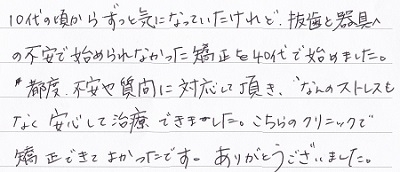 10代の頃からずっと気になっていたけれど、抜歯と器具へ
の不安で始められなかった矯正を40代で始めました。
都度、不安や質問に対応して頂き、なんのストレスも
なく安心して治療できました。こちらのクリニックで
矯正できてよかったです。ありがとうございました。